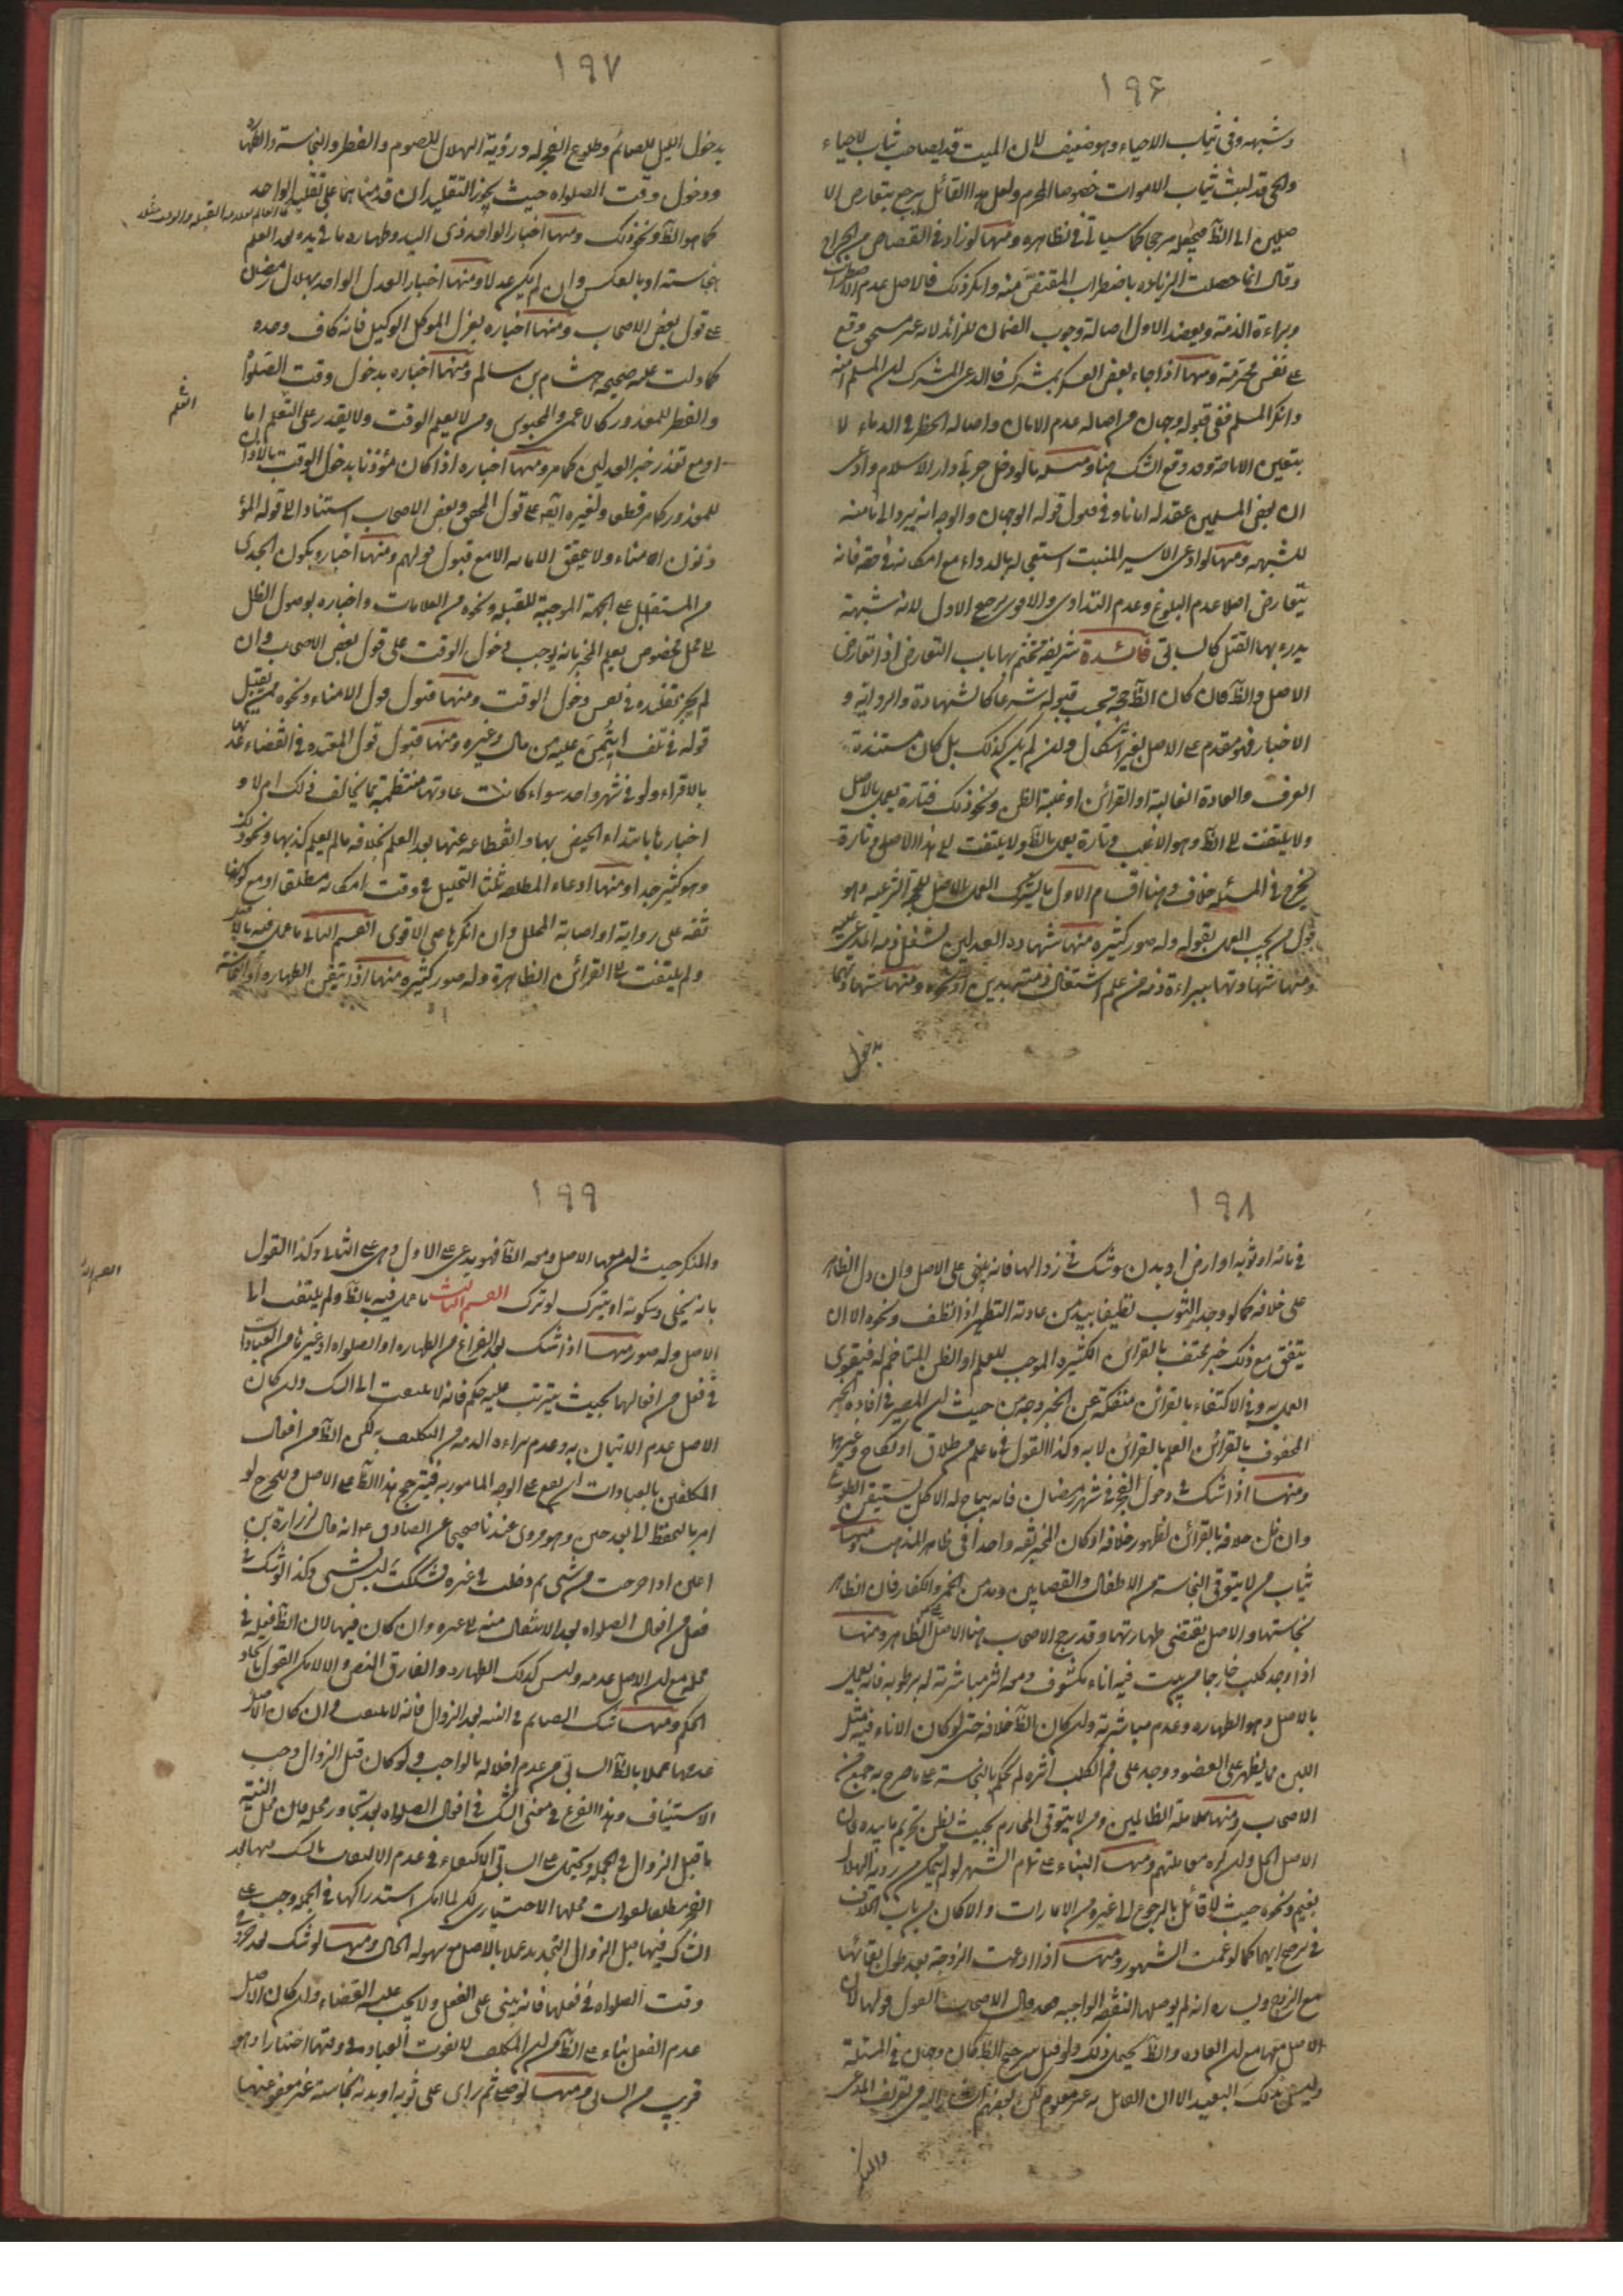 ١٩۶
وشبهه وفى ثياب الاحياء وهو ضعيف لان الميت قد يصاحب ثياب الاحياء
والحى قد يلبث ثياب الاموات خصوصا المحرم ولعل هذا القائل يرجع بتعارض الا
صلين الى الظ فيجعله مرجحا كما سياتى فى نظائره ومنها لو زاد فى القصاص من الجراح
وقال انما حصلت الزيادة باضطراب المقتص منه وانكر ذلك فالاصل عدم الاضطراب
وبراءة الذمة ويعضد الاول اصالة وجوب الضمان للزائد لانه غير مستحق وقع
على نفس محترمة ومنها اذا جاء بعض العسكر بمشرك فادعى المشرك ان المسلم آمنه
وانكر المسلم ففى قبوله وجهان من اصالة عدم الامان واصالة الحظر فى الدماء لا
بتعين الاباحة وقد وقع الشك هنا ومثله ما لو دخل حربى دار الاسلام وادعى
ان بعض المسلمين عقد له امانا وفى قبول قوله الوجهان والوجه انه يرد الى مامنه
للشبهة ومنها لو ادعى الاسير المنبت استعجاله بالدواء مع امكانه فى حقه فانه
يتعارض اصلا عدم البلوغ وعدم التداوى والاقوى ترجيح الاول لانه شبهة
يدرء بها القتل كالسابق فائدة شريفة نختم بها باب التعارض اذا تعارض
الاصل والظ فان كان الظ حجة يجب قبولها شرعا كالشهادة والرواية و
الاخبار فهو مقدم على الاصل بغير اشكال وان لم يكن كذلك بل كان مستنده
العرف والعادة الغالبة او القرائن او غلبة الظن ونحو ذلك فتارة يعمل بالاصل
ولا يلتفت الى الظ وهو الاغلب وتارة يعمل بالظ ولا يلتفت الى هذا الاصل وتارة
يخرج فى المسئلة خلاف فهنا اقسام الاول ما يترك العمل بالاصل للحجة الشرعية وهو
قول من يجب العمل بقوله وله صور كثيرة منها شهادة العدلين بشغل ذمة المدعى عليه
ومنها شهادتهما ببراءة ذمة من علم اشتغال ذمته بدين او نحوه ومنها شهادتهما
بدخول
١٩٧
بدخول الليل للصائم وطلوع الفجر له ورؤية الهلال للصوم والفطر والنجاسة والطهارة
ودخول وقت الصلواة حيث يجوز التقليد ان قدمناهما على تقليد الواحد
كما هو الظ ونحو ذلك ومنها اخبار الواحد ذى اليد وطهارة ما فى يده بعد العلم
بنجاسته او بالعكس وان لم يكن عدلا ومنها اخبار العدل الواحد بهلال رمضان
على قول بعض الاصحاب ومنها اخباره بعزل الموكل الوكيل فانه كاف وحده
كما دلت عليه صحيحة هشام بن سالم ومنها اخباره بدخول وقت الصلواة
والفطر للمعذور كالاعمى والمحبوس ومن لا يعلم الوقت ولا يقدر على التعلم اما
او مع تعذر خبر العدلين كما مر ومنها اخباره اذا كان مؤذنا بدخول الوقت بالاذان
للمعذور كما مر قطعا ولغيره ايضا على قول المحقق وبعض الاصحاب استنادا الى قوله المؤ
ذنون امناء ولا يتحقق الامانة الا مع قبول قولهم ومنها اخباره بكون الجدى
من المستقبل على الجهة الموجبة للقبلة ونحوه من العلامات واخباره بوصول الظل
الى محل مخصوص يعلم المخبر بانه يوجب دخول الوقت على قول بعض الاصحاب وان
لم يجز تقليده فى نفس دخول الوقت ومنها قبول قول الامناء ونحوه ممن يقبل
قوله فى تلف ما ائتمن عليه من مال وغيره ومنها قبول قول المعتدة فى انقضاء عدتها
بالاقراء ولو فى شهر واحد سواء كانت عادتها منتظمة بما يخالف ذلك ام لا و
اخبارها بابتداء الحيض بها وانقطاعه عنها بعد العلم بخلافه ما لم يعلم كذبها ونحو ذلك
وهو كثير جدا ومنها ادعاء المطلقة ثلثا التحليل فى وقت امكانه مطلقا او مع كونها
ثقة على رواية او اصابة المحلل وان انكرها على الاقوى القسم الثانى ما عمل فيه بالاصل
ولم يلتفت الى القرائن الظاهرة وله صور كثيرة منها اذا تيقن الطهارة او النجاسة
التعلم
١٩٨
فى مائه او ثوبه او ارض او بدن وشك فى زوالها فانه يبنى على الاصل وان دل الظاهر
على خلافه كما لو وجد الثوب نظيفا بيد من عادته التطهير اذا نظف ونحوه الا ان
يتفق مع ذلك خبر محتف بالقرائن الكثيرة الموجب للعلم او الظن المتاخم له فيقوى
العمل به وفى الاكتفاء بالقرائن منفكة عن الخبر وجه من حيث ان المصير فى افادة الخبر
المحفوف بالقرائن العلم بالقرائن لا به وكذا القول فى ما علم من طلاق او نكاح وغيرها
ومنها اذا شك فى دخول الفجر فى شهر رمضان فانه يباح له الاكل حتى يستيقن الطلوع
وان ظن خلافه بالقرائن لظهور خلافه او كان المخبر ثقة واحدا فى ظاهر المذهب ومنها
ثياب من لا يتوقى النجاسة من الاطفال والقصابين ومدمن الخمر والكفار فان الظاهر
نجاستها والاصل يقتضى طهارتها وقد رجح الاصحاب هنا الاصل على الظاهر ومنها
اذا وجد كلب خارجا من بيت فيه اناء مكشوف ومعه اثر مباشرته له برطوبة فانه يعمل
بالاصل وهو الطهارة وعدم مباشرته وان كان الظ خلافه حتى لو كان الاناء فيه مثل
اللبن مما يظهر على العضو ووجد على فم الكلب اثره لم يحكم بالنجاسة على ما صرح به جمع من
الاصحاب ومنها معاملة الظالمين ومن لا يتوقى المحارم بحيث يظن تحريم ما بيده فان
الاصل الحل وان كره معاملتهم ومنها البناء على تمام الشهر لو لم يتمكن من رؤية الهلال
بغيم ونحوه حيث لا قائل بالرجوع الى غيره من الامارات والا كان من باب الخلاف
فى ترجيح ايهما كما لو غمت الشهور ومنها اذا ادعت الزوجة بعد طول بقائها
مع الزوج ويساره انه لم يوصلها النفقة الواجبة فقد قال الاصحاب القول قولها لان
الاصل معها مع ان العادة والظ يحيل ذلك ولو قيل بترجيح الظ كان وجها فى المسئلة
وليس بذلك البعيد الا ان القائل به غير معلوم لكن بعضهم اشار اليه فى تعريف المدعى
والمنكر
١٩٩
والمنكر حيث ان معها الاصل ومعه الظ فهو يدعى على الاول وهى على الثانى وكذا القول
بانه يخلى وسكوته او يترك لو ترك القسم الثالث ما عمل فيه بالظ ولم يلتفت الى
الاصل وله صور منها اذا شك بعد الفراغ من الطهارة او الصلواة او غيرها من العبادات
فى فعل من افعالها بحيث يترتب عليه حكم فانه لا يلتفت الى الشك وان كان
الاصل عدم الاتيان به وعدم براءة الذمة من التكليف به لكن الظ من افعال
المكلفين بالعبادات ان يقع على الوجه المامور به فيترجح هذا الظ على الاصل وللحرج لو
امر بالتحفظ الى بعد حين وهو مروى عندنا صحيحا عن الصادق ع انه قال لزرارة بن
اعين اذا خرجت من شئ ثم دخلت فى غيره فشكك ليس بشئ وكذا لو شك فى
فعل من افعال الصلواة بعد الانتقال منه الى غيره وان كان فيها لان الظ فعله فى
محله مع ان الاصل عدمه وليس كذلك الطهارة والفارق النص والا لامكن القول باتحاد
الحكم ومنها شك الصائم فى النية بعد الزوال فانه لا يلتفت وان كان الاصل
عدمها عملا بالظ السابق من عدم اخلاله بالواجب ولو كان قبل الزوال وجب
الاستيناف وهذا الفرع فى معنى الشك فى افعال الصلواة بعد تجاوز محله فان محل النية
ما قبل الزوال فى الجملة ويحتمل على السابق الاكتفاء فى عدم الالتفات بالشك فيها بعد
الفجر مطلقا لفوات محلها الاختيارى لكن لما امكن استدراكها فى الجملة وجب على
الشاك فيها قبل الزوال التجديد عملا بالاصل مع سهولة الحال ومنها لو شك بعد خروج
وقت الصلواة فى فعلها فانه يبنى على الفعل ولا يجب عليه القضاء وان كان الاصل
عدم الفعل بناء على الظ من ان المكلف لا يفوت العبادة فى وقتها اختيارا وهو
قريب من السابق ومنها لو صلى ثم راى على ثوبه او بدنه نجاسة غير معفو عنها